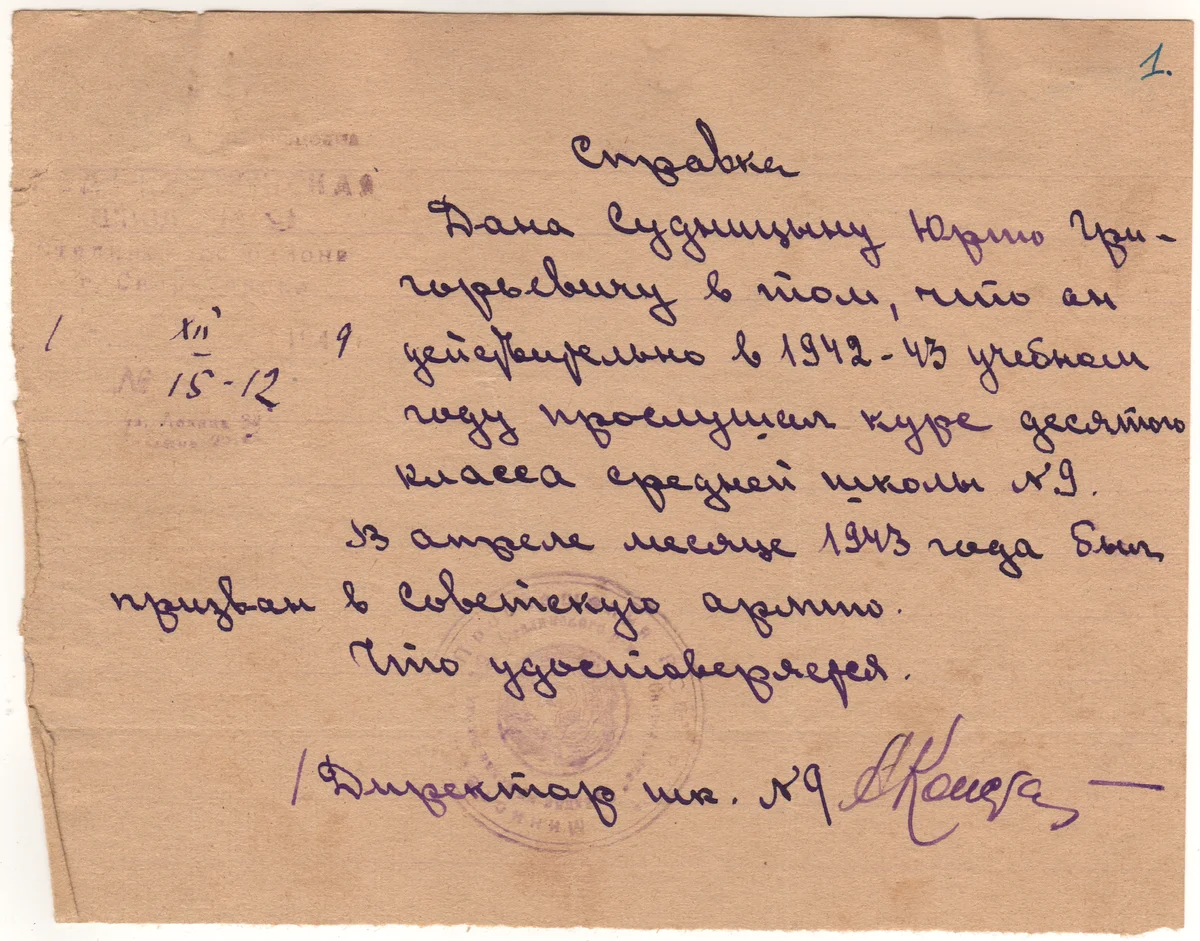 1.
Справка
Дана Судницыну Юрию Гри-
горьевичу в том, что он
действительно в 1942-43 учебном
году прослушал курс десятого
класса средней школы N9.
В апреле месяце 1943 года был
призван в Советскую армию.
Что удостоверяется.
Директор шк. N9
1 XII 194 9
№ 15-12